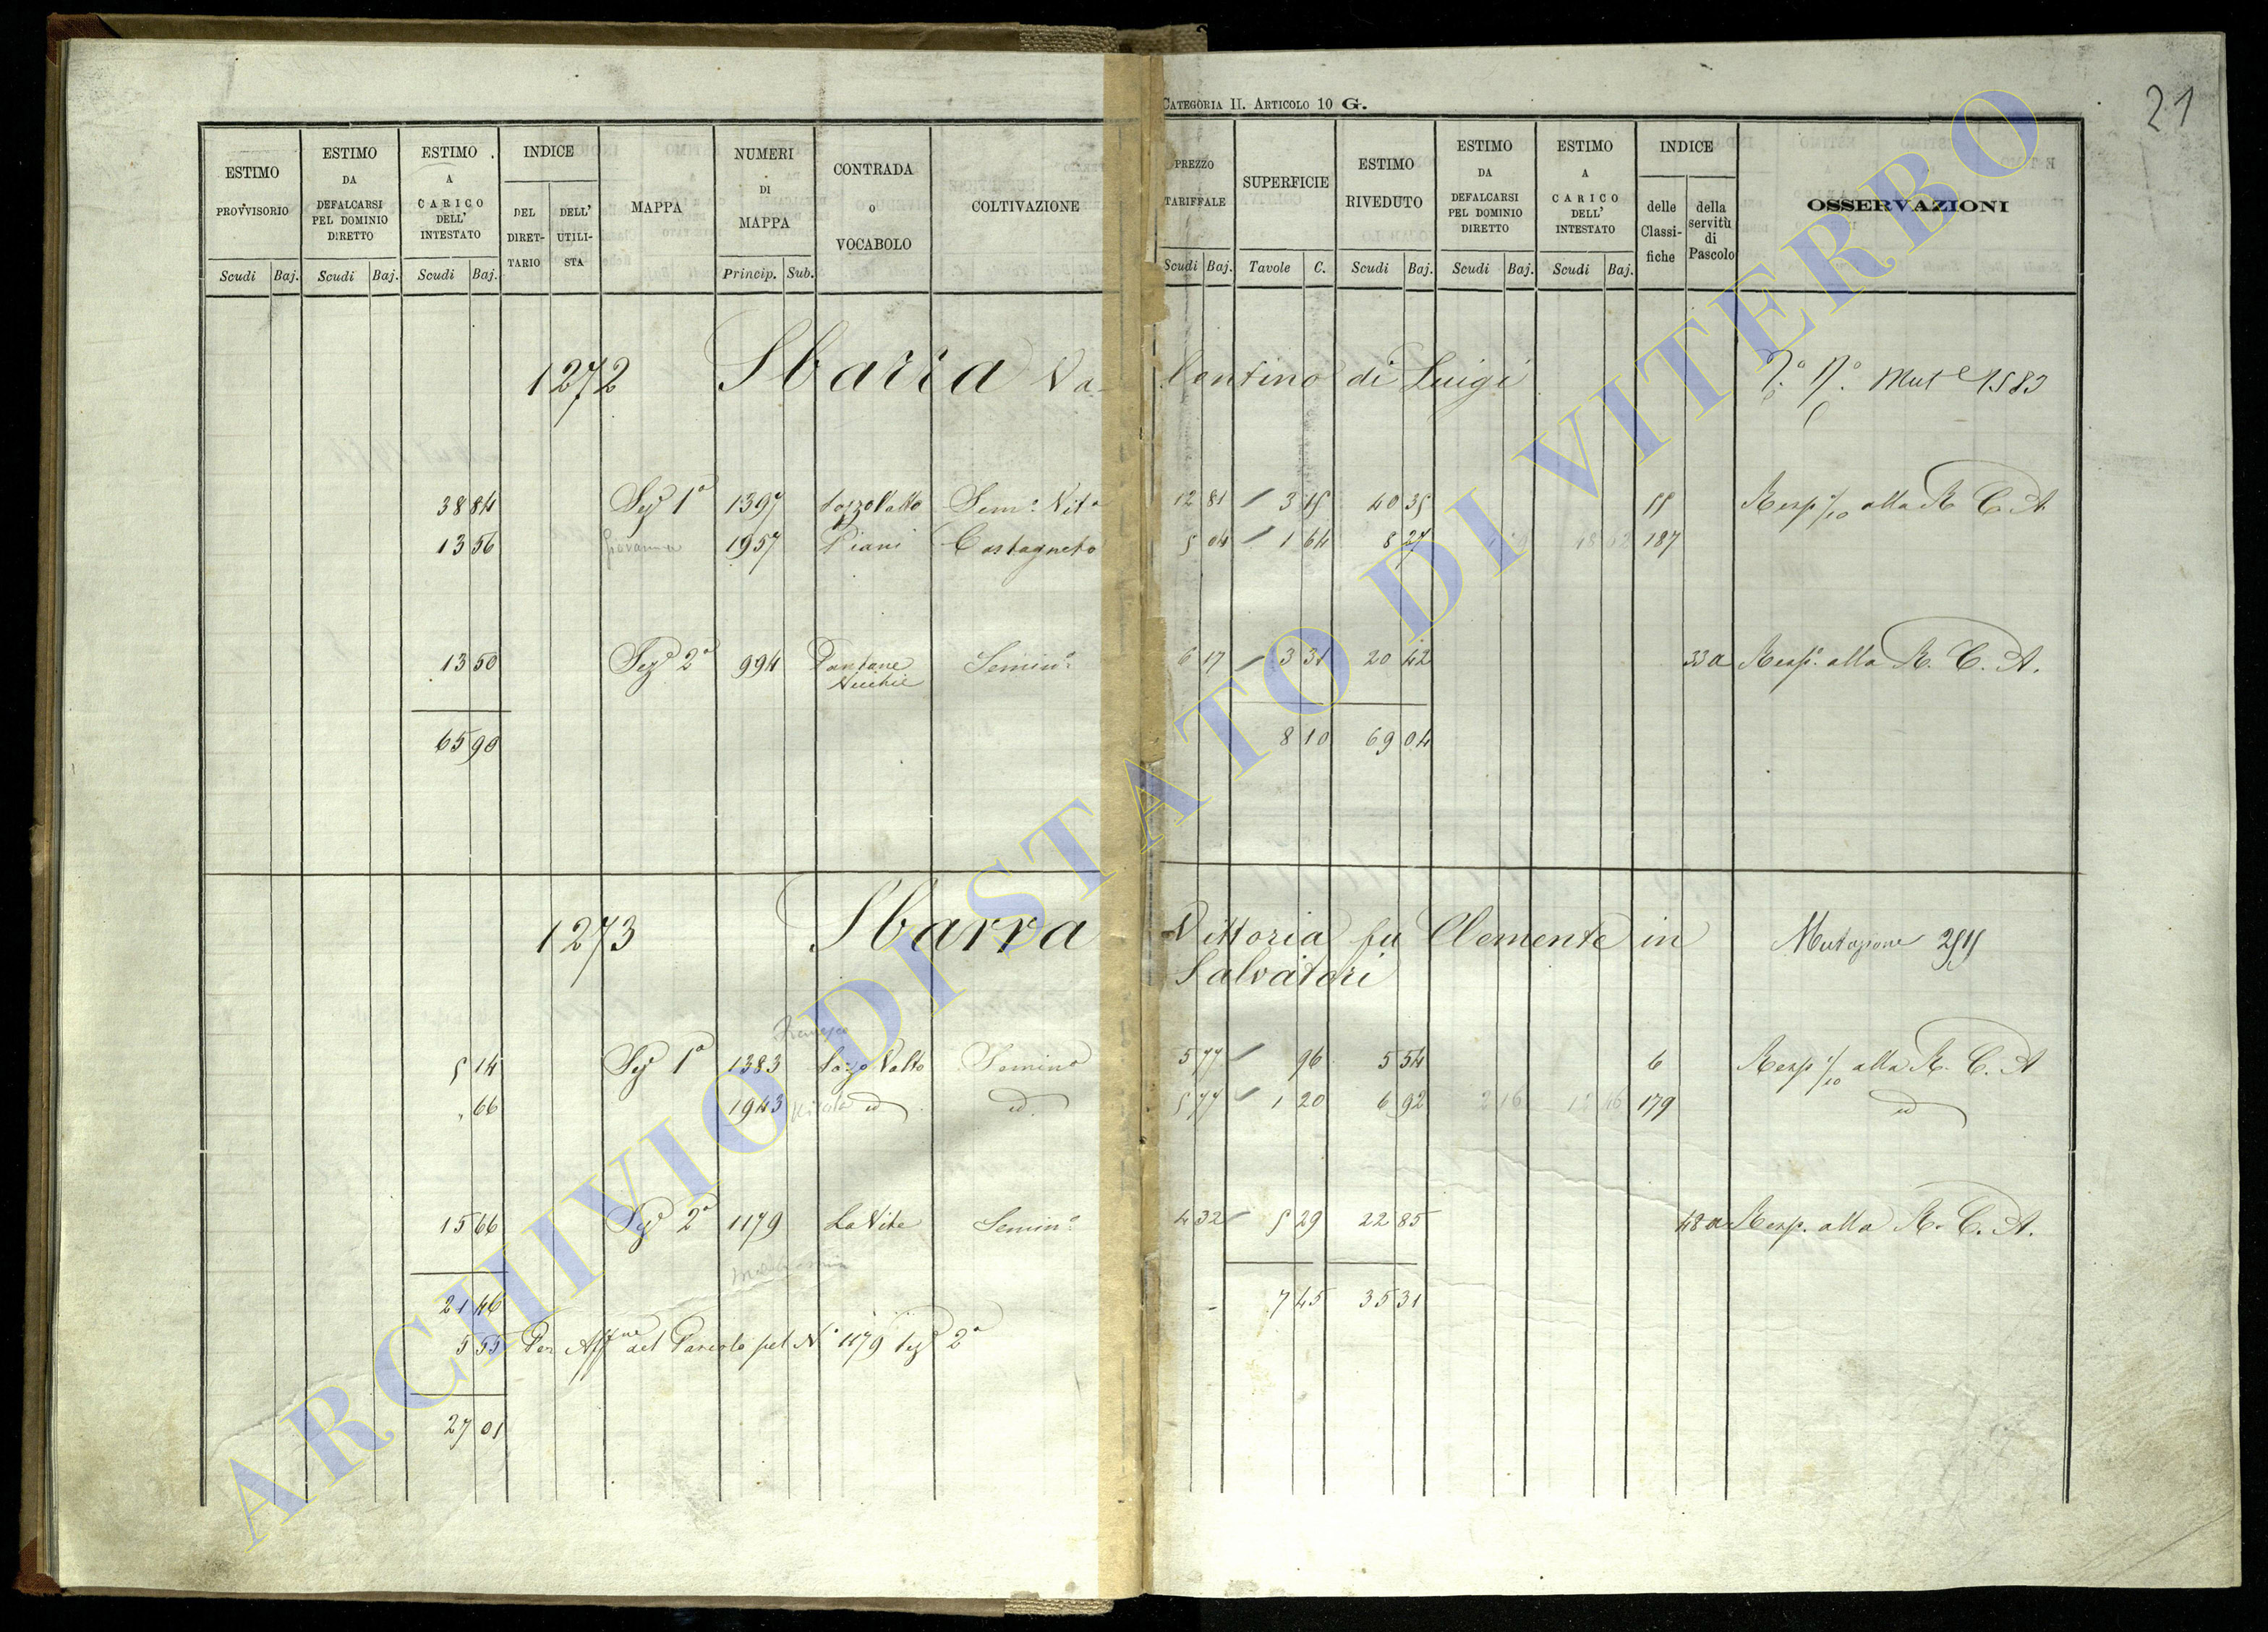 CATEGORIA II. ARTICOLO 10 G.
21
ESTIMO PROVVISORIO Scudi Baj.
ESTIMO DA DEFALCARSI PEL DOMINIO DIRETTO Scudi Baj.
ESTIMO A CARICO DELL' INTESTATO Scudi Baj.
INDICE DEL DIRET-TARIO DELL' UTILI-STA
MAPPA
NUMERI DI MAPPA Princip. Sub.
CONTRADA o VOCABOLO
COLTIVAZIONE
PREZZO TARIFFALE Scudi Baj.
SUPERFICIE Tavole C.
ESTIMO RIVEDUTO Scudi Baj.
ESTIMO DA DEFALCARSI PEL DOMINIO DIRETTO Scudi Baj.
ESTIMO A CARICO DELL' INTESTATO Scudi Baj.
INDICE delle Classi-fiche della servitù di Pascolo
OSSERVAZIONI
1272 Sbarra Valentino di Luigi
38 84 Sez 1a 1397 Pozzo Valto Sem.o Vit.o 12 81 3 15 40 35 55 Resp alla R C A
13 56 Giovanna 1957 Piani Castagneto 5 04 1 64 8 27 187
13 50 Sez 2a 994 Pantane Semin.o 6 17 3 31 20 42 33 a Resp.e alla R. C. A.
65 90 8 10 69 04
1273 Sbarra Vittoria fu Clemente in Mutazione
Salvatori
5 14 Sez 1a 1383 Semin.o 5 77 96 5 54 6 Resp alla R. C. A
" 66 1943 Nicola id id. 5 77 1 20 6 92 2 16 12 46 179 id
15 66 Sez 2a 1179 La Vite Semin.o 4 32 5 29 22 85 48 a Resp. alla R. C. A.
21 46 7 45 35 31
5 55 Per Aff.ne del Pascolo pel N.o 1179 Sez 2a
27 01
ARCHIVIO DI STATO DI VITERBO